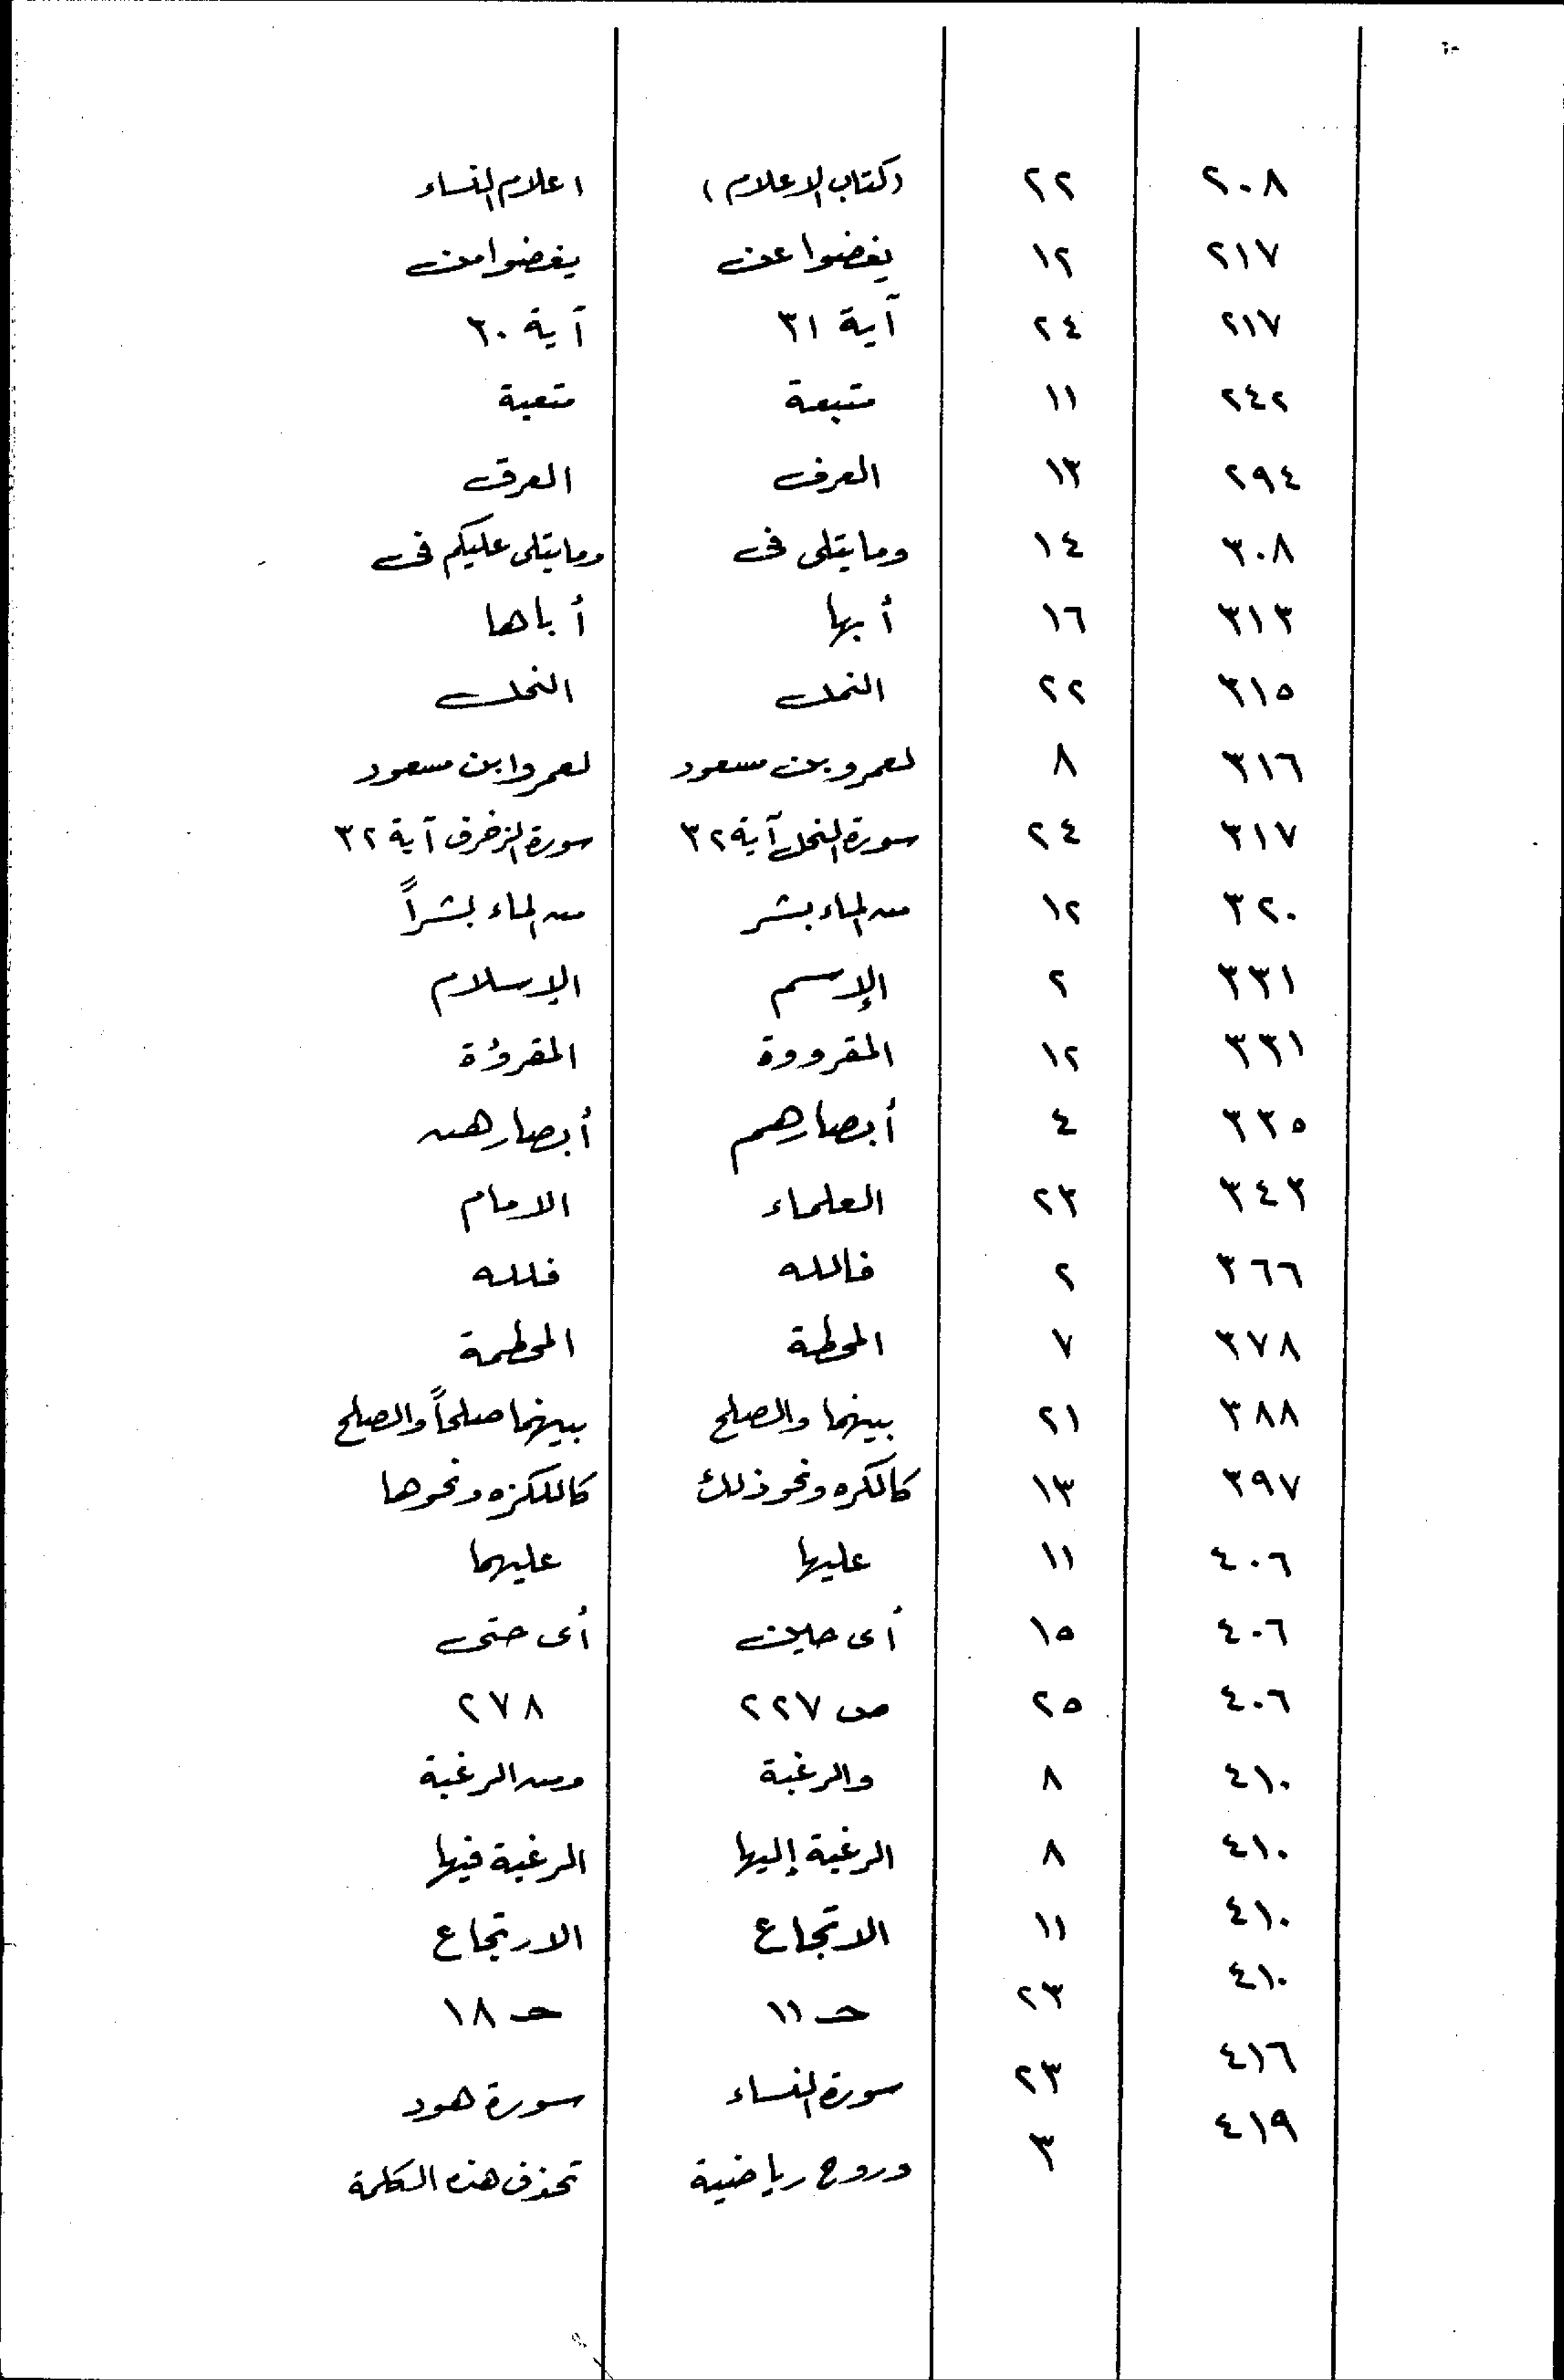 ٢٠٨ ٢٢ (كتاب الاعلام) اعلام النساء
٢١٧ ١٢ يغضوا عن يغضوا من
٢١٧ ٢٤ آية ٣١ آية ٣٠
٢٤٢ ١١ متبعة متعبة
٢٩٤ ١٣ العرف العرق
٣٠٨ ١٤ وما يتلى فى وما يتلى عليكم فى
٣١٣ ١٦ أبها أباها
٣١٥ ٢٢ النمل النحل
٣١٦ ٨ لعمرو بن مسعود لعمر وابن مسعود
٣١٧ ٢٤ سورة النحل آية ٣٢ سورة الزخرف آية ٣٢
٣٢٠ ١٢ من الماء بشر من الماء بشراً
٣٣١ ٢ الإسم الإسلام
٣٣١ ١٢ المقرووة المقروُة
٣٣٥ ٤ أبصارهم أبصارهن
٣٤٣ ٢٣ العلماء الامام
٣٦٦ ٢ فالله فلله
٣٧٨ ٧ المحطة المحطمة
٣٨٨ ٢١ بينهما والصلح بينهما صلحاً والصلح
٣٩٧ ١٣ كالكره ونحو ذلك كاللكزه ونحوها
٤٠٦ ١١ عليها عليهما
٤٠٦ ١٥ أى حين أى حتى
٤٠٦ ٢٥ ص ٢٢٧ ٢٧٨
٤١٠ ٨ والرغبة ومن الرغبة
٤١٠ ٨ الرغبة إليها الرغبة فيها
٤١٠ ١١ الاتجاع الارتجاع
٤١٠ ٢٣ حـ ١١ حـ ١٨
٤١٦ ٢٣ سورة النساء سورة هود
٤١٩ ٣ وروح رياضية تحذف هذه الكلمة